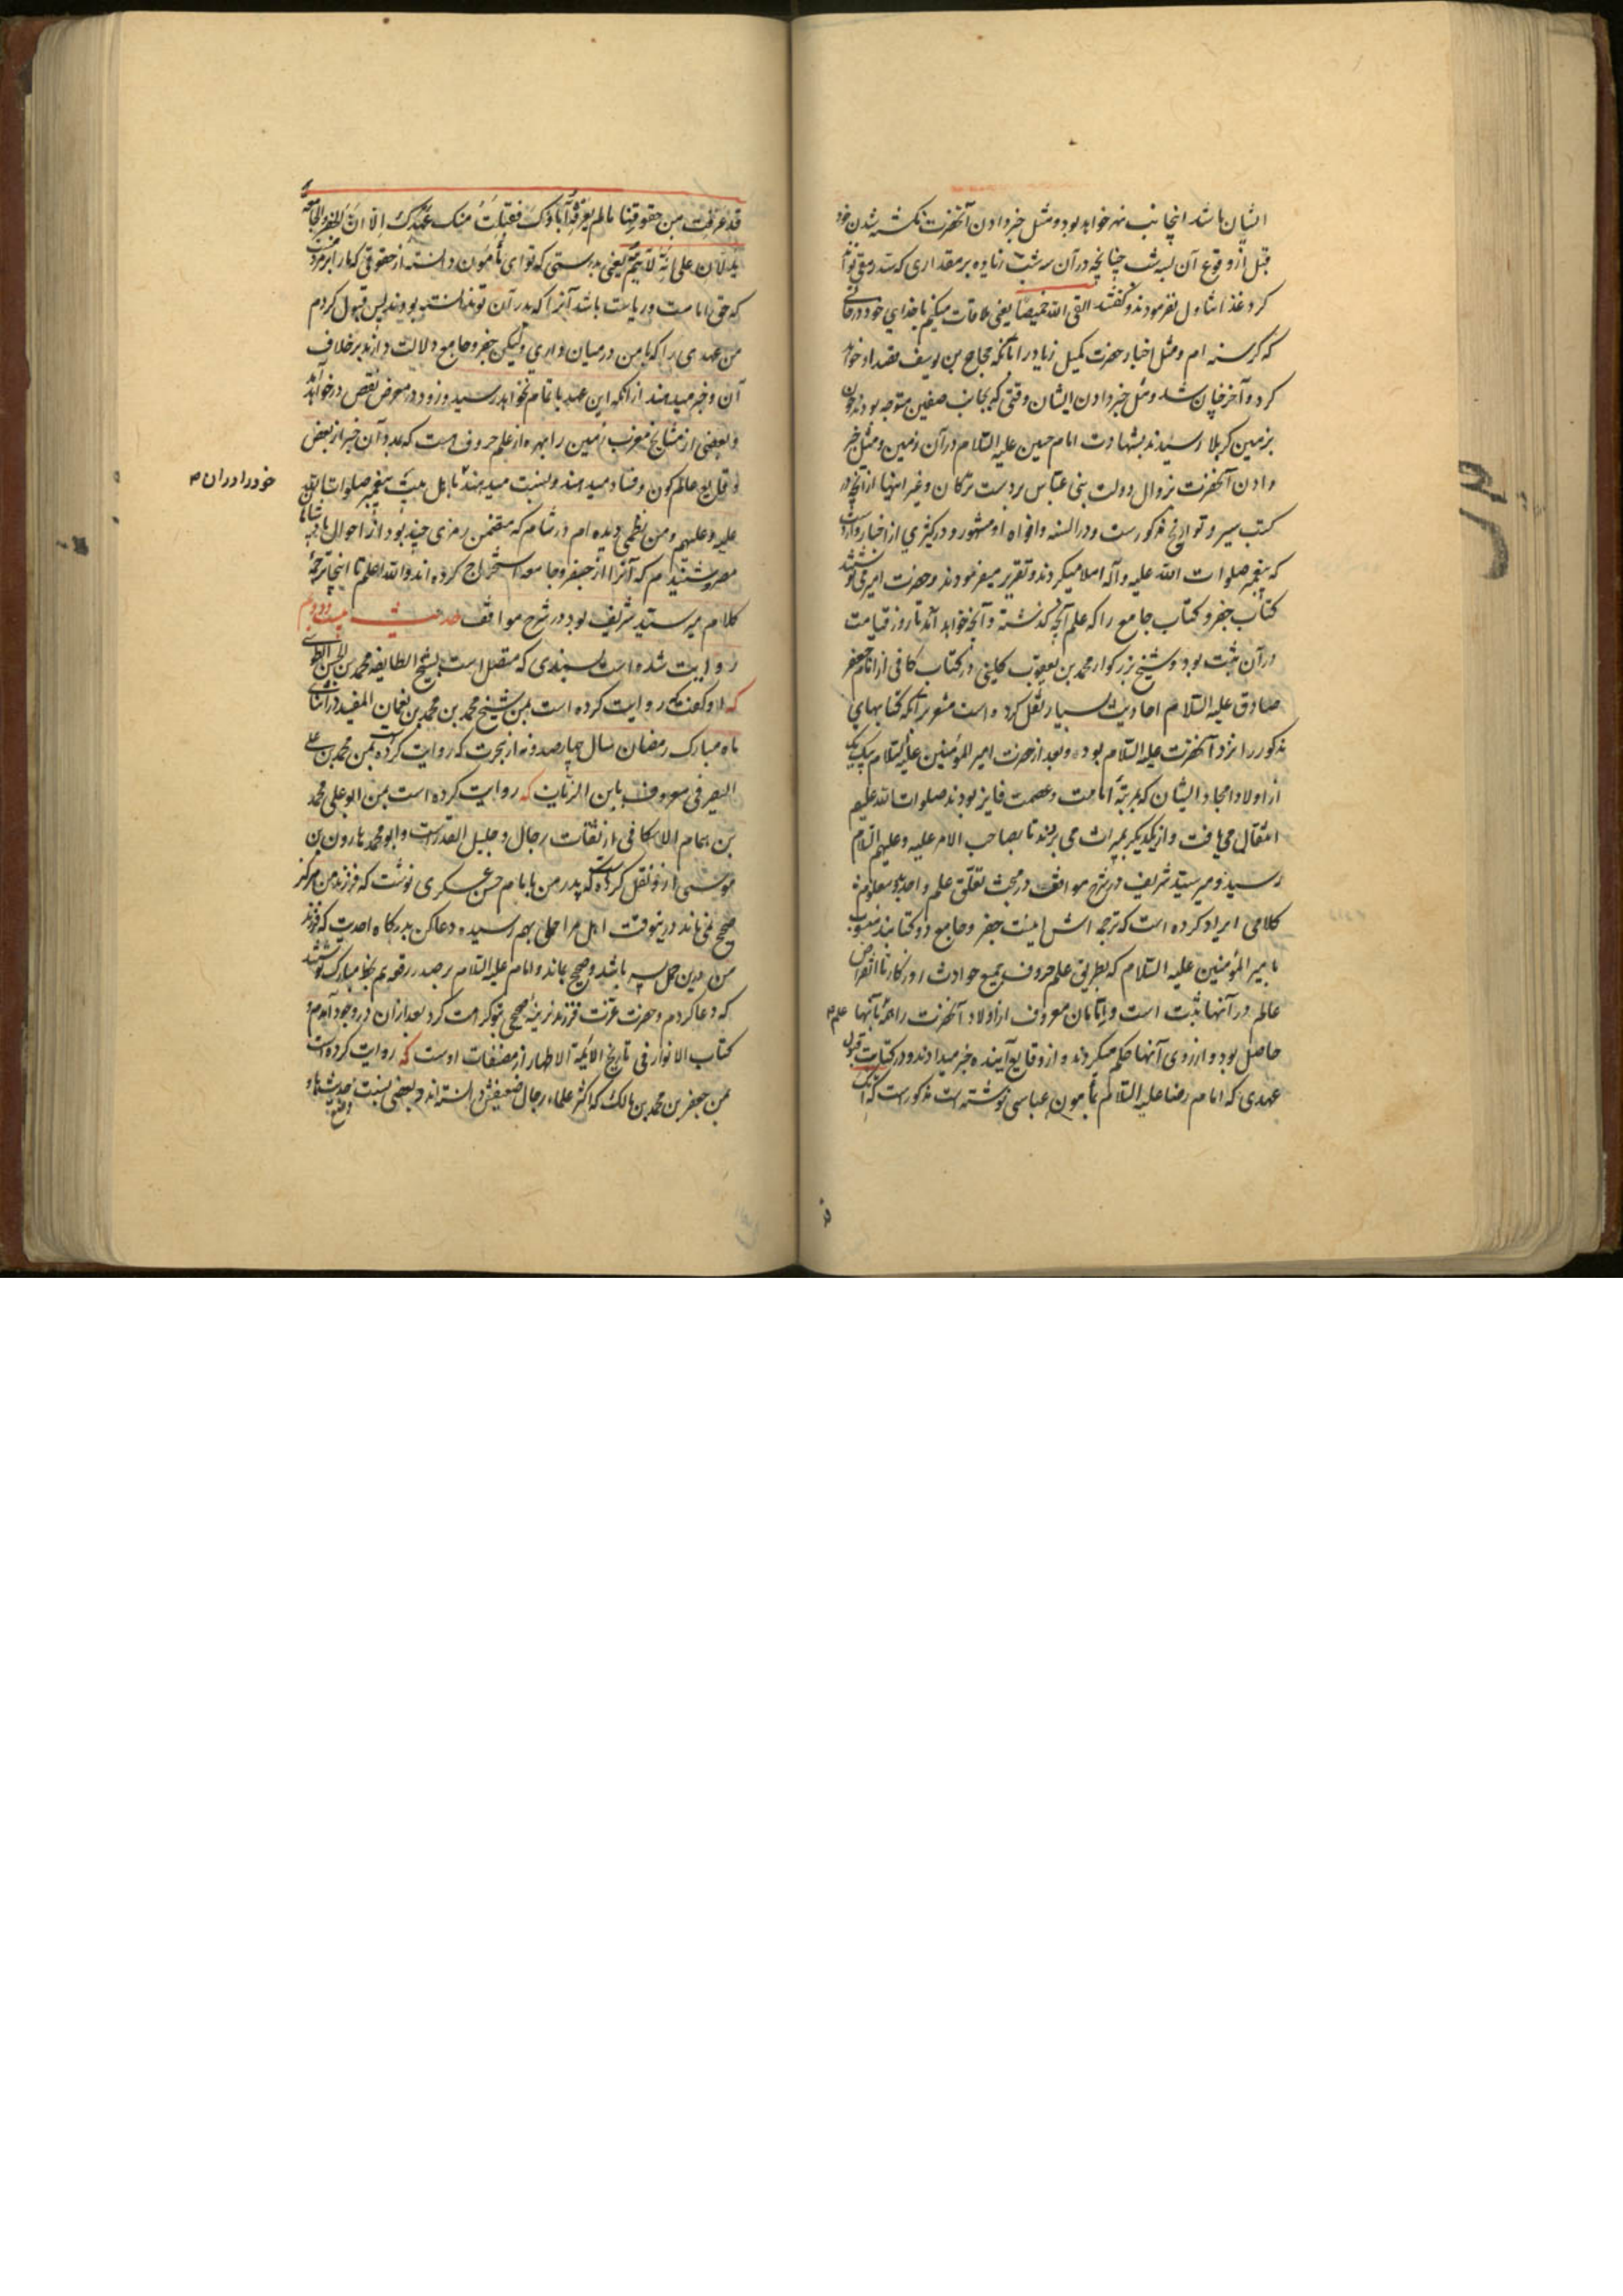 ایشان باشد اینجانب نهر خواهد بود و مثل خبر دادن آنحضرت بکشته شدن خود
قبل از وقوع آن بسه شب چنانچه در آن سه شب زیاده بر مقداری که سد رمق تواند
کرد غذا تناول نفرمودند و گفتند القی الله خمیصا یعنی ملاقات میکنم با خدای خود در حالتی
که گرسنه ام و مثل اخبار حضرت کمیل زیاد را بآنکه حجاج بن یوسف قصد او خواهد
کرد و آخر چنان شد و مثل خبر دادن ایشان وقتی که بجانب صفین متوجه بودند چون
بزمین کربلا رسیدند بشهادت امام حسین علیه السلام در آن زمین و مثل خبر
دادن آنحضرت بزوال دولت بنی عباس بر دست ترکان و غیر اینها از آنچه در
کتب سیر و تواریخ مذکور است و در السنه و افواه مشهور و در کثیری از اخبار وارد است
که پیغمبر صلوات الله علیه و آله املا میکردند و تقریر میفرمودند و حضرت امیر می نوشتند
کتاب جفر و کتاب جامع را که علم آنچه گذشته و آنچه خواهد آمد تا روز قیامت
در آن ثبت بود و شیخ بزرگوار محمد بن یعقوب کلینی در کتاب کافی از امام جعفر
صادق علیه السلام احادیث بسیار نقل کرده است مشعر بر آنکه کتابهای
مذکور را نزد آنحضرت علیه السلام بوده و بعد از حضرت امیر المؤمنین علیه السلام بیک بیک
از اولاد امجاد ایشان که بمرتبهٔ امامت و عصمت فایز بودند صلوات الله علیهم
انتقال می یافت و از یکدیگر بمیراث می بردند تا بصاحب الامر علیه و علیهم السلام
رسید و میر سید شریف در شرح مواقف در مبحث تعلق علم واحد بدو معلوم
کلامی ایراد کرده است که ترجمه اش اینست جفر و جامع دو کتابند منسوب
بامیر المؤمنین علیه السلام که بطریق علم حروف جمیع حوادث روزگار تا انقراض
عالم در آنها ثبت است و امامان معروف از اولاد آنحضرت را بآنها علم
حاصل بود و از روی آنها حکم میکردند و از وقایع آینده خبر میدادند و در کتابت قبول
عهدی که امام رضا علیه السلام بمأمون عباسی نوشته است مذکور است که انک
قد عرفت من حقوقنا ما لم یعرفه آباؤک فقبلت منک عهدک الا ان الجفر والجامعة
یدلان علی انه لا یتم یعنی بدرستی که تو ای مأمون دانسته از حقوقی که ما را بر مردمست
که حق امامت و ریاست باشد آنرا که پدران تو ندانسته بودند پس قبول کردم
من عهدی را که با من در میان داری ولیکن جفر و جامع دلالت دارند بر خلاف
آن و خبر میدهند از آنکه این عهد باتمام نخواهد رسید و زود در معرض نقص در خواهد آمد
و بعضی از مشایخ مغرب زمین را بهره از علم حروف هست که بدو آن خبر از بعض
وقایع عالم کون و فساد میدهند و نسبت میدهند باهل بیت پیغمبر صلوات الله
خود را در آن
علیه و علیهم و من نظمی دیده ام در شام که متضمن رمزی چند بود از احوال پادشاهان
مصر و شنیدم که آنرا از جفر و جامعه استخراج کرده اند والله اعلم تا اینجا ترجمهٔ
کلام میر سید شریف بود در شرح مواقف حدیث بیست و دویم
روایت شده است بسندی که متصل است بشیخ الطایفه محمد بن الحسن الطوسی
که او گفت که روایت کرده است بمن شیخ محمد بن محمد بن نعمان المفید در اثنای
ماه مبارک رمضان سال چهار صد و نه از هجرت که روایت کرده است بمن محمد بن علی
الصیرفی معروف بابن الزیات که روایت کرده است بمن ابو علی محمد
بن همام الاسکافی از ثقات رجال و جلیل القدر است و ابو محمد هارون بن
موسی ازو نقل کرده است که پدر من بامام حسن عسکری نوشت که فرزند من هرگز
صحیح نمی ماند درینوقت اهل مرا حملی بهم رسیده دعا کن بدرگاه احدیت که فرزند
من درین حمل پسر باشد و صحیح بماند و امام علیه السلام بر صدر رقعه بهم بخط مبارک نوشتند
که دعا کردم و حضرت عزت فرزند نرینهٔ صحیحی بتو کرامت کرد بعد از آن در وجود آمدم و
کتاب الانوار فی تاریخ الائمة الاطهار از مصنفات اوست که روایت کرده است
بمن جعفر بن محمد بن مالک که اکثر علماء رجال ضعیفش دانسته اند و بعضی نسبت حدیثها
وضع